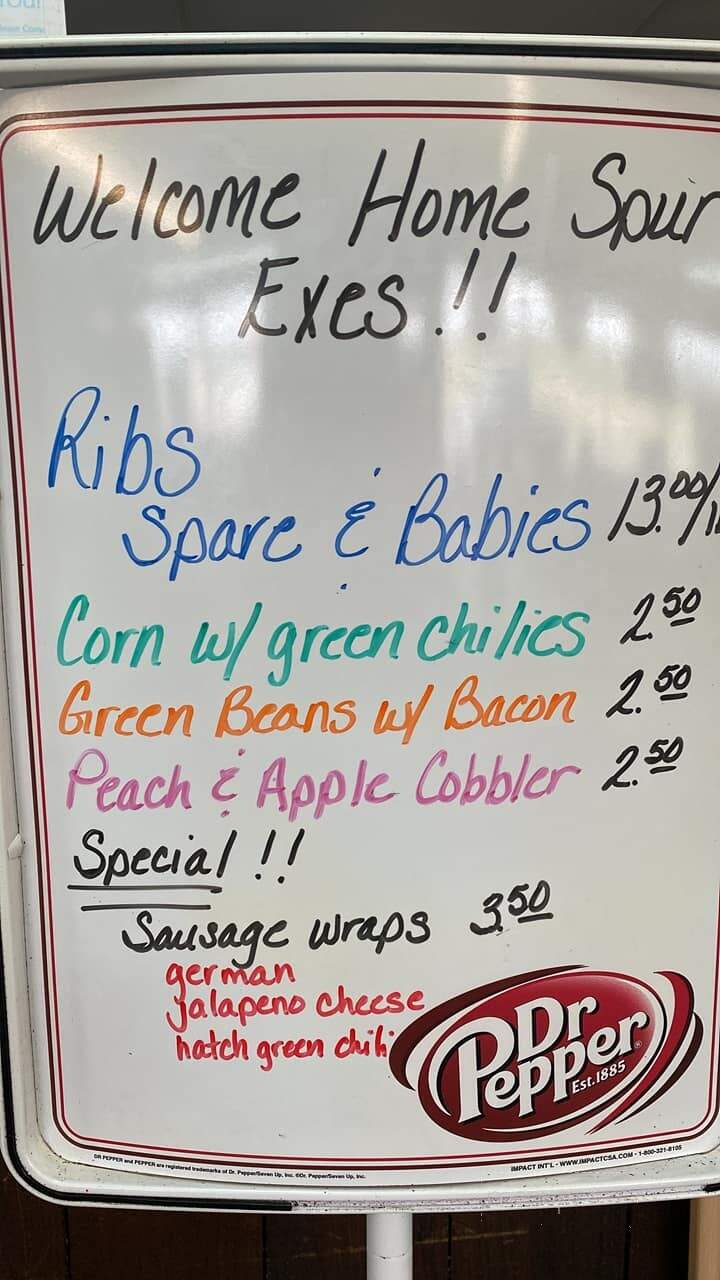 Welcome Home Spur
Exes!!
Ribs
Spare & Babies 13.00/
Corn w/ green chilies 2.50
Green Beans w/ Bacon 2.50
Peach & Apple Cobbler 2.50
Special!!
Sausage wraps 3.50
german
jalapeno cheese
hatch green chili
Dr
Pepper®
Est.1885
DR PEPPER and PEPPER are registered trademarks of Dr. Pepper/Seven Up, Inc. ©Dr. Pepper/Seven Up, Inc.
IMPACT INT'L - WWW.IMPACTCSA.COM - 1-800-321-8105